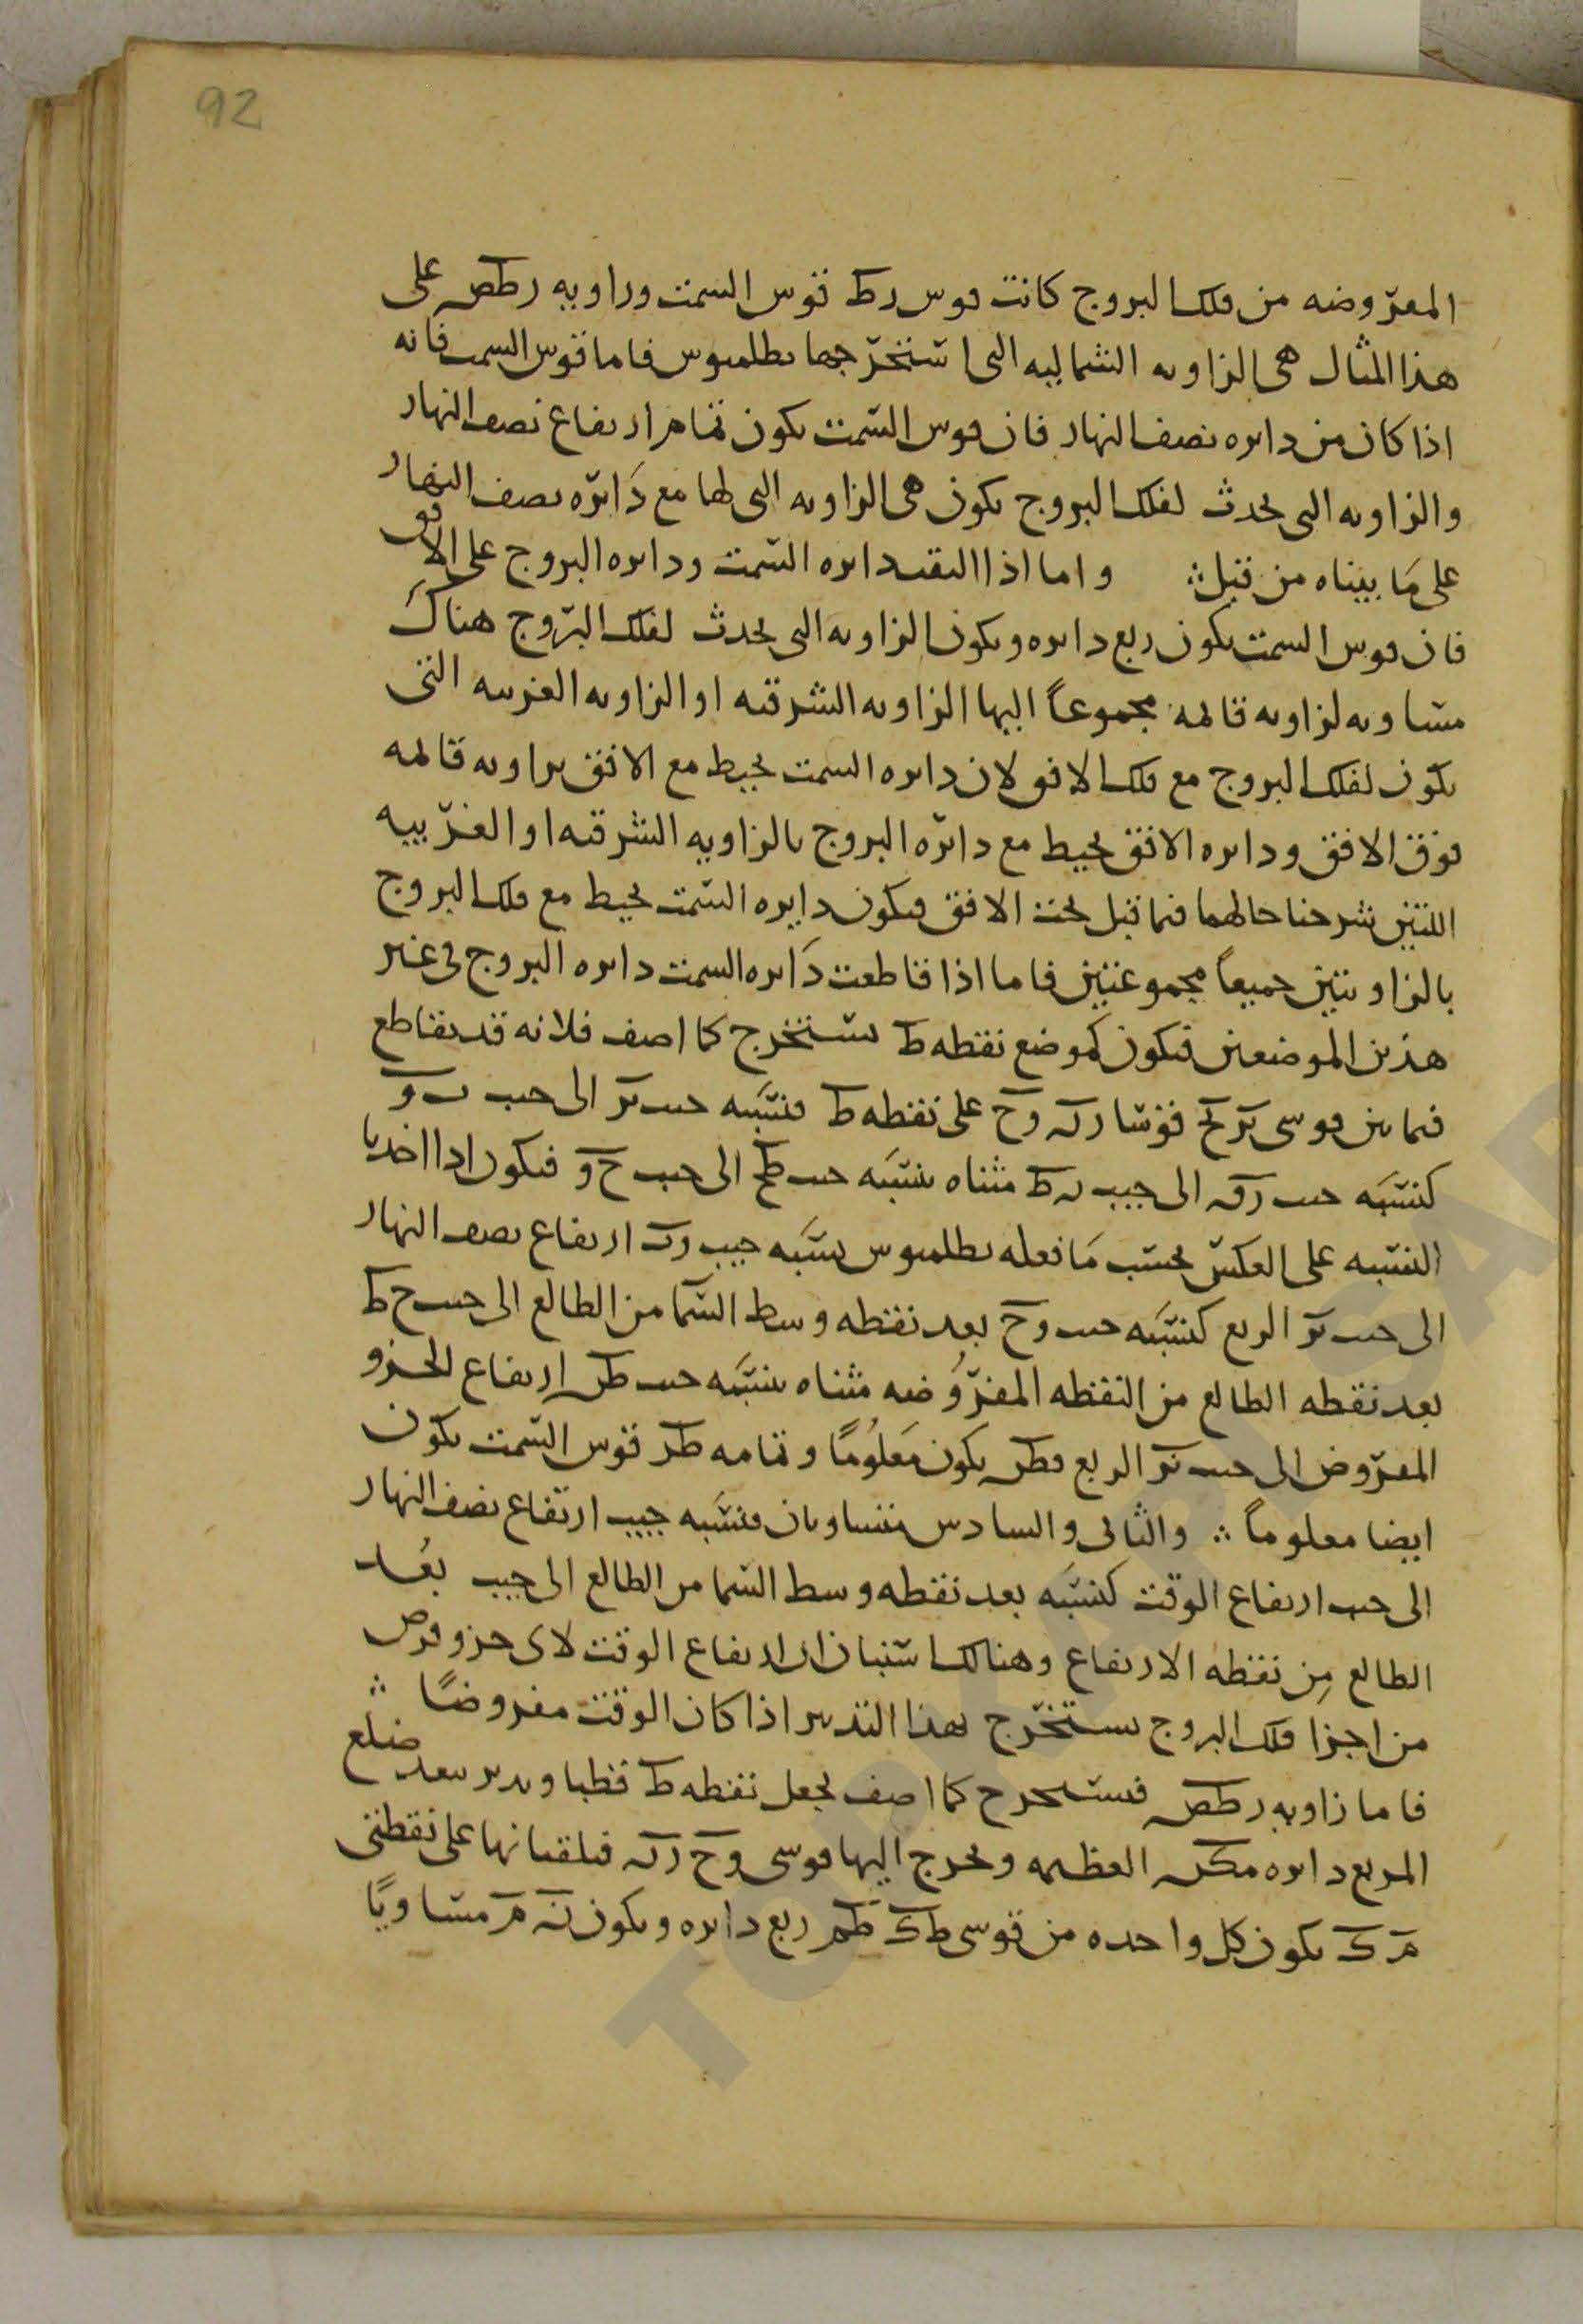 92
المفروضه من فلك البروج كانت قوس رط قوس السمت وزاويه رطص على
هذا المثال هى الزاويه الشماليه التى استخرجها بطلميوس فاما قوس السمت فانه
اذا كان من دايره نصف النهار فان قوس السمت يكون تمام ارتفاع نصف النهار
والزاويه التى تحدث لفلك البروج يكون هى الزاويه التى لها مع دايره نصف النهار
على ما بيناه من قبل ∴ واما اذا التقت دايره السمت ودايره البروج على الافق
فان قوس السمت يكون ربع دايره ويكون الزاويه التى تحدث لفلك البروج هناك
مساويه لزاويه قايمه مجموعاً اليها الزاويه الشرقيه او الزاويه الغربيه التى
يكون لفلك البروج مع فلك الافق لان دايره السمت تحيط مع الافق بزاويه قايمه
فوق الافق ودايره الافق تحيط مع دايره البروج بالزاويه الشرقيه او الغربييه
اللتين شرحنا حالهما فيما قبل تحت الافق فيكون دايره السمت تحيط مع فلك البروج
بالزاويتين جميعاً مجموعتين فاما اذا قاطعت دايره السمت دايره البروج فى غير
هذين الموضعين فيكون كموضع نقطه ط يستخرج كما اصف فلانه قد يقاطع
فيما بين قوسى فوسا وح على نقطه ط فنسبه جيب الى جيب
كنسبه جيب الى جيب مثناه بنسبه جيب طح الى جيب ح و فيكون اذا اخذنا
النسبه على العكس بحسب ما فعله بطلميوس نسبه جيب ارتفاع نصف النهار
الى جيب الربع كنسبه جيب وح بعد نقطه وسط السما من الطالع الى جيب ح ط
بعد نقطه الطالع من النقطه المفروضه مثناه بنسبه جيب ارتفاع الجزو
المفروض الى جيب الربع يكون معلوماً وتمامه طر قوس السمت يكون
ايضا معلوماً ∴ والثانى والسادس متساويان فنسبه جيب ارتفاع نصف النهار
الى جيب ارتفاع الوقت كنسبه بعد نقطه وسط السما من الطالع الى جيب بعد
الطالع من نقطه الارتفاع وهنالك استبان ان ارتفاع الوقت لاى جزو فرض
من اجزا فلك البروج يستخرج بهذا التدبير اذا كان الوقت مفروضاً ∴
فاما زاويه رطص فيستخرج كما اصف نجعل نقطه ط قطبا وندير ببعد ضلع
المربع دايره العظيمه ونخرج اليها قوسى وح فيلقيانها على نقطتى
م ك يكون كل واحده من قوسى ط ك طم ربع دايره ويكون مساوياً